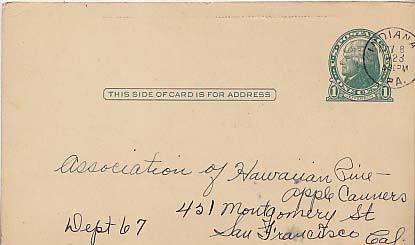 INDIANA
8
23
PM
PA.
1 1
THIS SIDE OF CARD IS FOR ADDRESS
Association of Hawaiian Pine-
apple Canners
451 Montgomery St
Dept 67 San Francisco Cal.